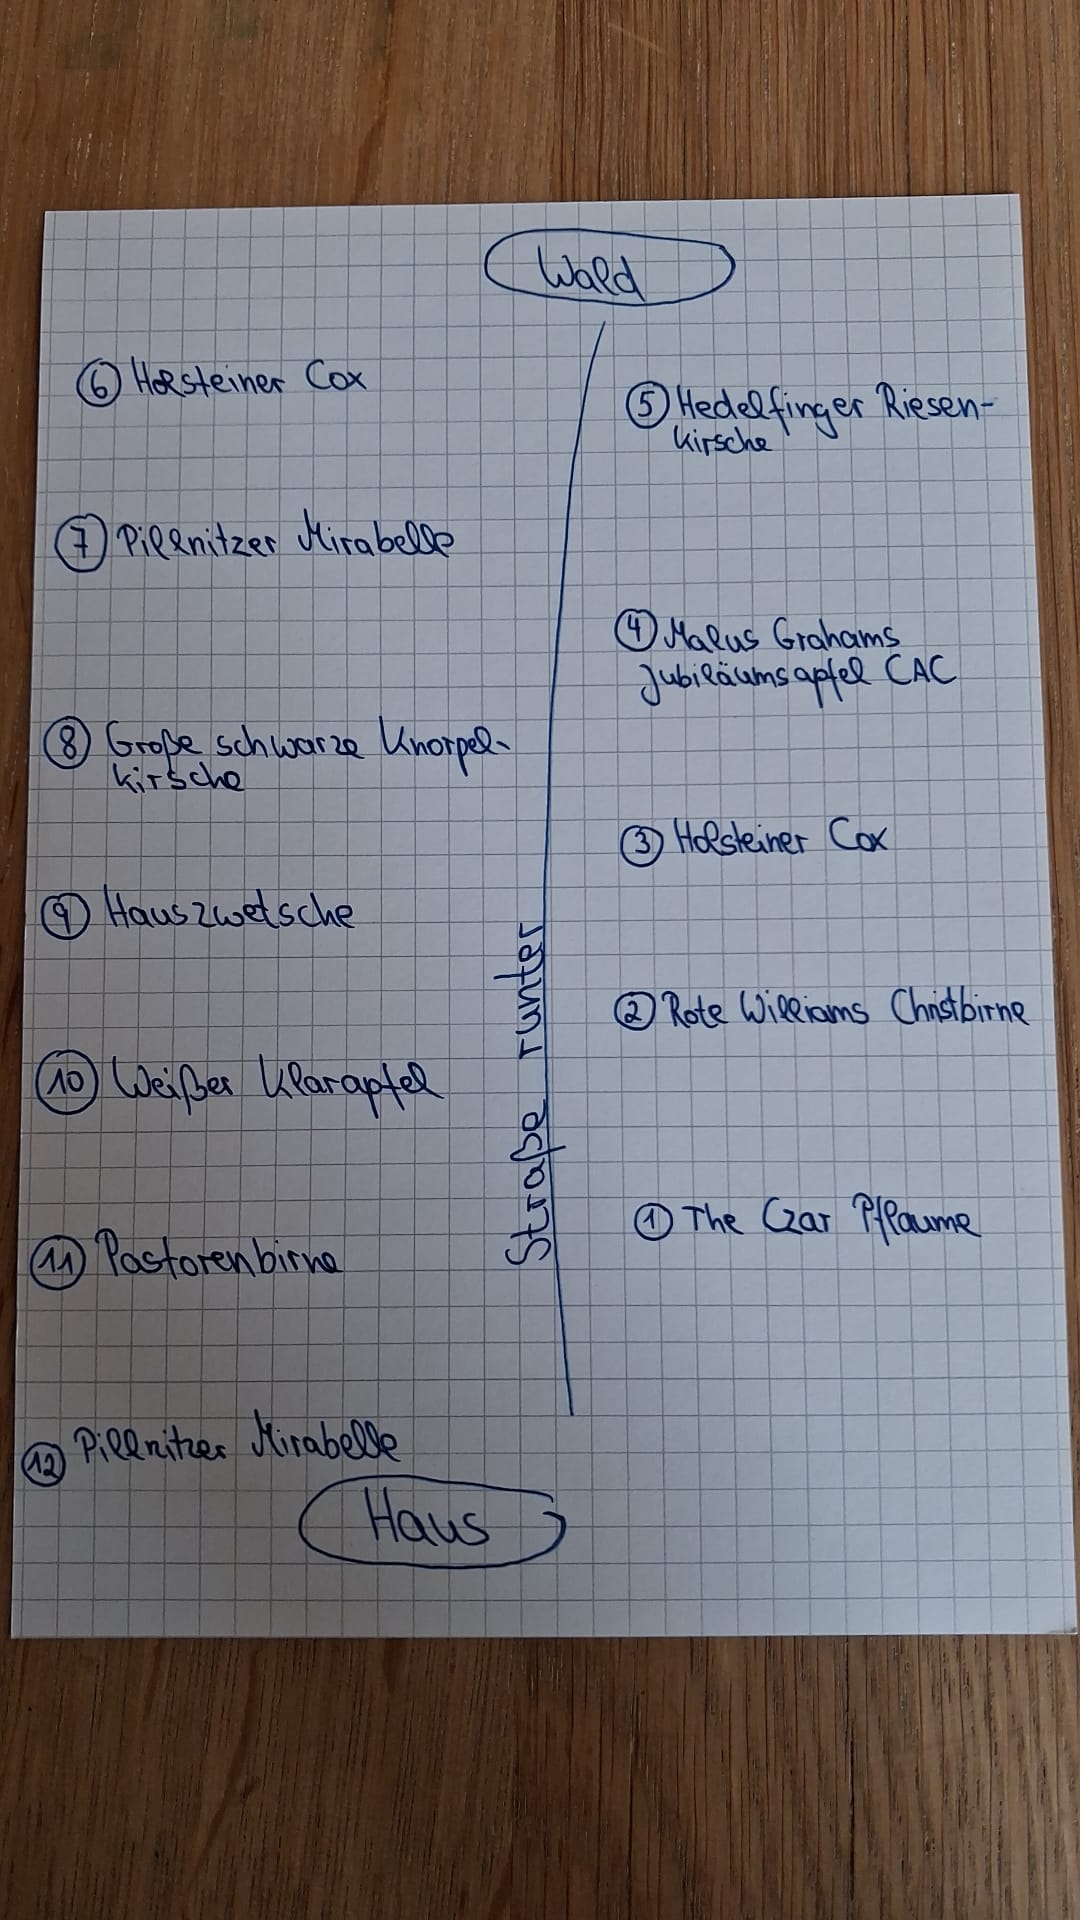 Wald
⑥ Holsteiner Cox
⑤ Hedelfinger Riesen-
kirsche
⑦ Pillnitzer Mirabelle
④ Malus Grahams
Jubiläumsapfel CAC
⑧ Große schwarze Knorpel-
kirsche
③ Holsteiner Cox
⑨ Hauszwetsche
② Rote Williams Christbirne
⑩ Weißer Klarapfel
Straße runter
① The Czar Pflaume
⑪ Pastorenbirne
⑫ Pillnitzer Mirabelle
Haus